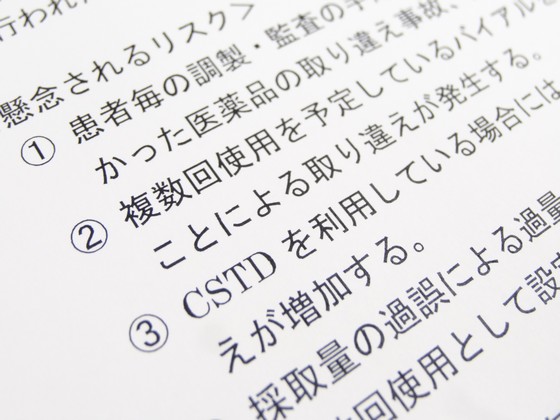 行われた
懸念されるリスク＞
① 患者毎の調製・監査の手
かった医薬品の取り違え事故、
② 複数回使用を予定しているバイアルと
ことによる取り違えが発生する。
③ CSTD を利用している場合には
えが増加する。
採取量の過誤による過量
数回使用として設定